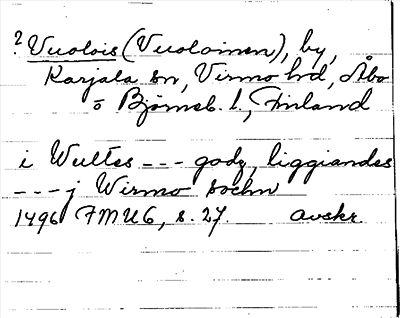 ? Vuolois (Vuoloinen), by,
Karjala sn, Virmo hd, Åbo
o Björneb. l., Finland
i Wultes --- godz, liggiandes
--- j Wirmo sochn
1496 FMU 6, s. 27. avskr.